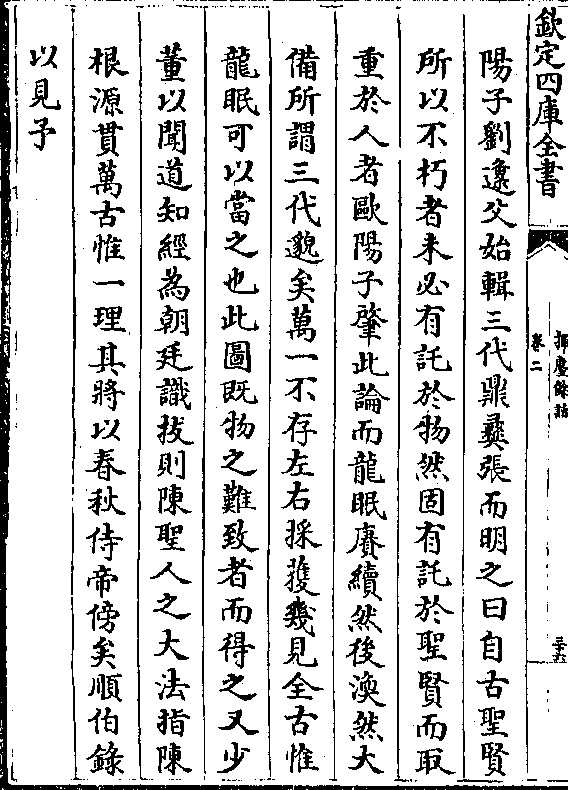 欽定四庫全書
揮麈餘話
卷二
三十六
陽子劉邍父始輯三代鼎彝張而明之曰自古聖賢
所以不朽者未必有託於物然固有託於聖賢而取
重於人者歐陽子肇此論而龍眠賡續然後渙然大
備所謂三代邈矣萬一不存左右採獲幾見全古惟
龍眠可以當之也此圖既物之難致者而得之又少
董以聞道知經為朝廷識拔則陳聖人之大法指陳
根源貫萬古惟一理其將以春秋侍帝傍矣順伯錄
以見予